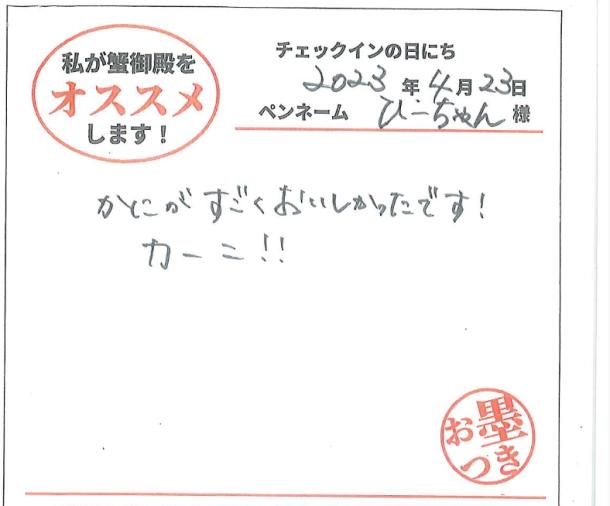 私が蟹御殿を
オススメ
します！
チェックインの日にち
2023年4月23日
ペンネーム ぴーちゃん様
かにがすごくおいしかったです！
カーニ！！
お墨
つき